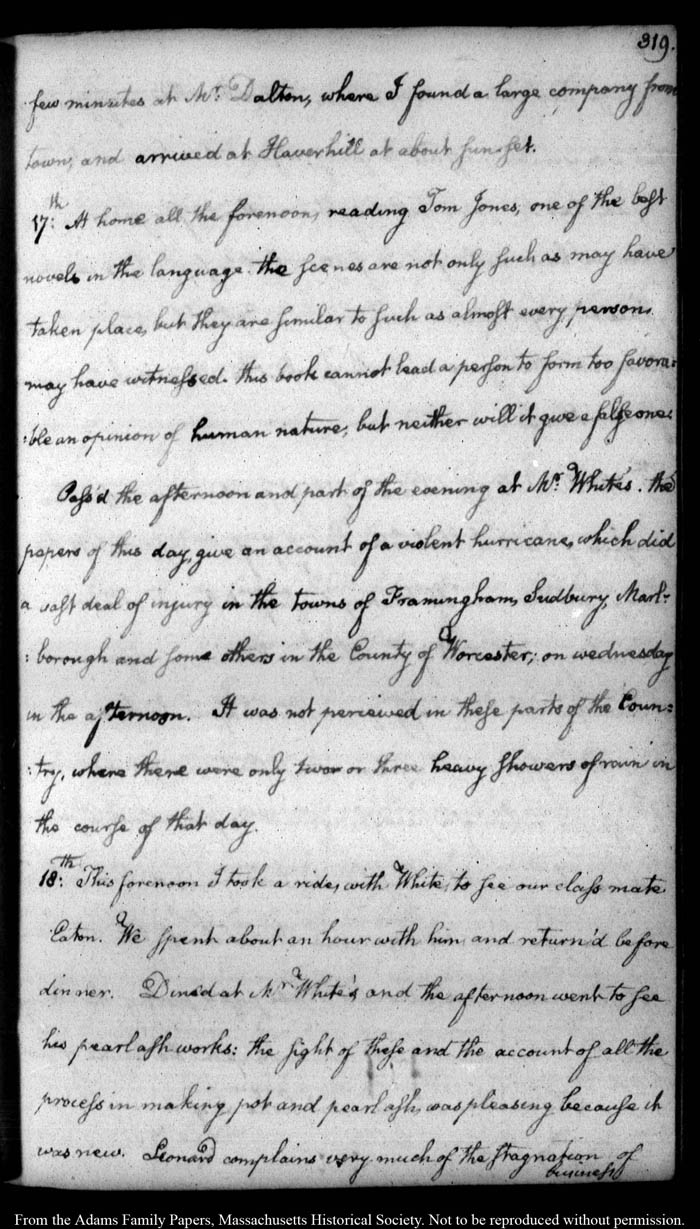 319.
few minutes at Mr. Dalton, where I found a large company from
town, and arrived at Haverhill at about sun-set.
17th: At home all the forenoon, reading Tom Jones, one of the best
novels in the language. the scenes are not only such as may have
taken place, but they are similar to such as almost every person
may have witnessed. this book cannot lead a person to form too favora:
:ble an opinion of human nature, but neither will it give a false one.
Pass'd the afternoon and part of the evening at Mr. White's. the
papers of this day, give an account of a violent hurricane, which did
a vast deal of injury in the towns of Framingham, Sudbury, Marl-
:borough and some others in the County of Worcester; on wednesday
in the afternoon. It was not perceived in these parts of the Coun:
:try, where there were only two or three heavy showers of rain in
the course of that day.
18th: This forenoon I took a ride, with White, to see our class mate
Eaton. We spent about an hour with him, and return'd before
dinner. Dined at Mr. White's and the afternoon went to see
his pearl ash works: the sight of these and the account of all the
process in making pot and pearl ash, was pleasing because it
was new. Leonard complains very much of the stagnation of
business
From the Adams Family Papers, Massachusetts Historical Society. Not to be reproduced without permission